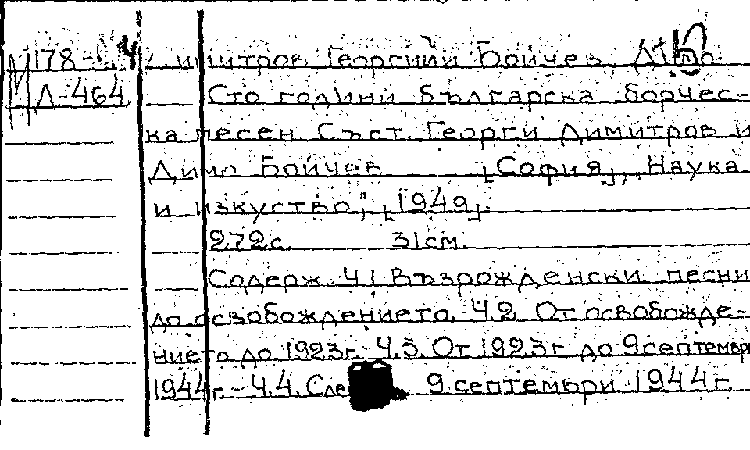 М178-
Димитров, Георгий и Бойчев, Димо
Л-464
Сто години българска борчес-
ка песен. Съст. Георги Димитров и
Димо Бойчев [София], „Наука
и изкуство“, [1949].
272 с. 31 см.
Содерж. Ч.1 Възрожденски песни
до освобождението. Ч.2. От освобожде-
нието до 1923г. Ч.3. От 1923г до 9 септемвр
1944г. - Ч.4. След 9 септември 1944г.